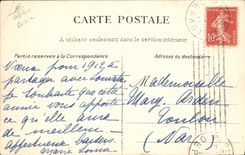 CARTE POSTALE
A utiliser seulement dans le service intérieur
Partie réservée à la Correspondance
Adresse du destinataire
Vœux pour 1912 à
partager avec
Je souhaite que cette
année vous apporte
ce qu'elle aura
de meilleur
affectueux baisers
Mademoiselle
Marg.
Toulon
(Var)
10